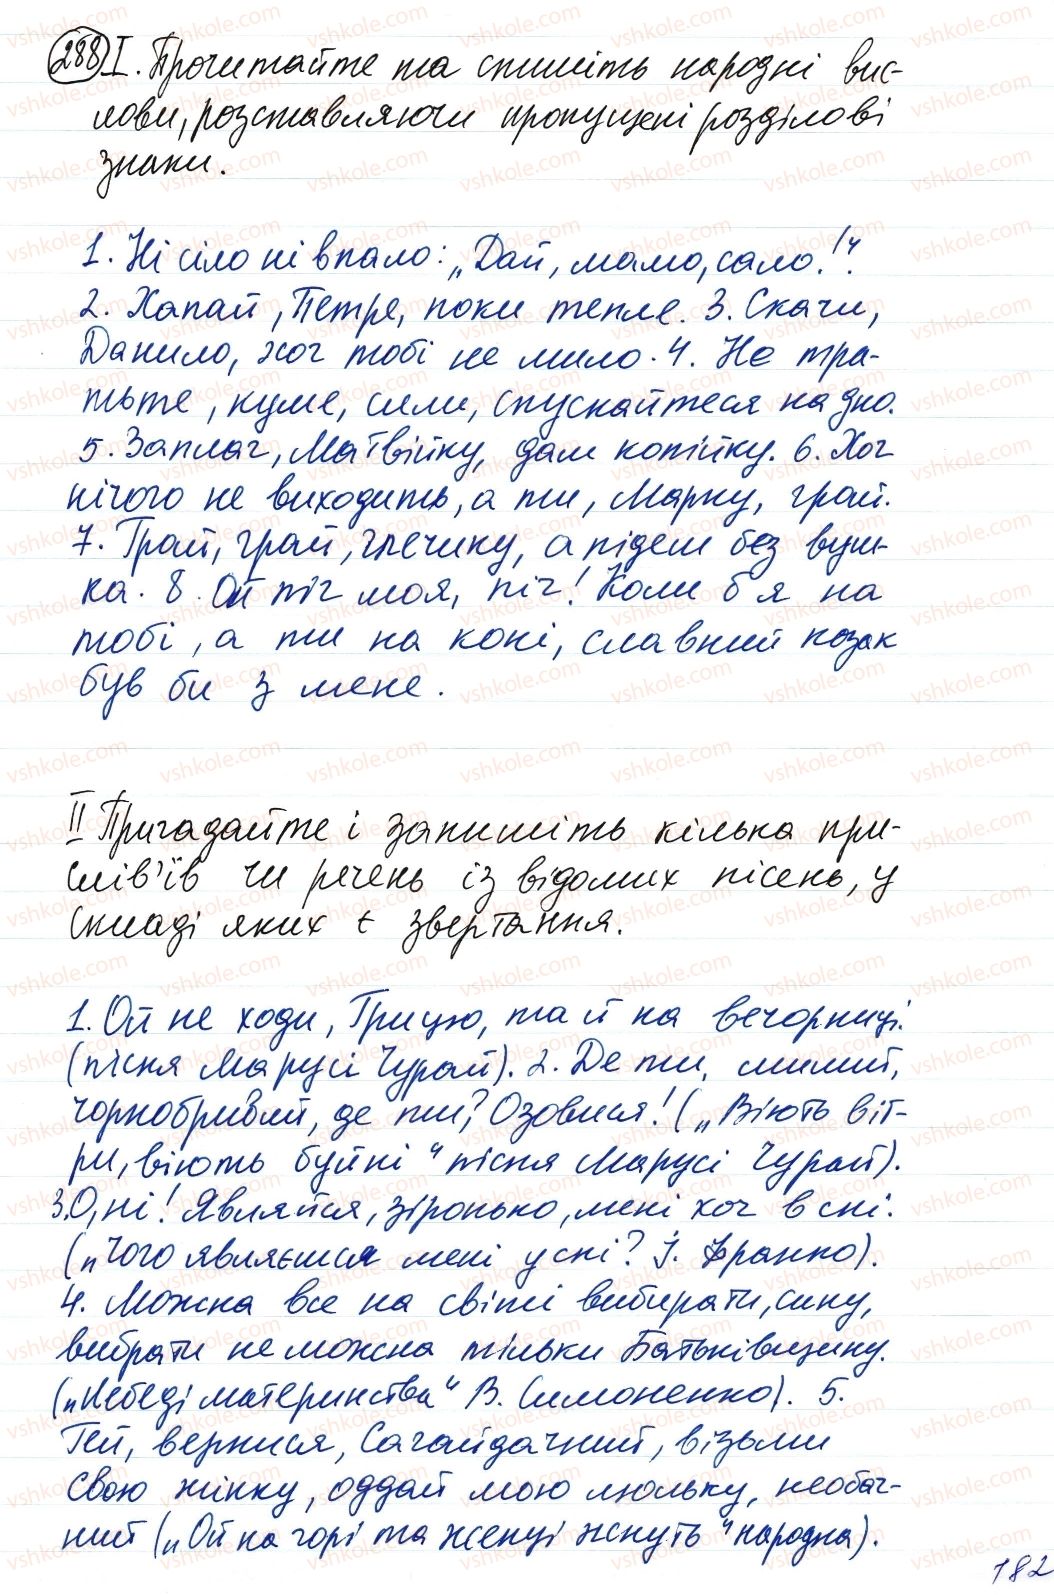 288 I. Прочитайте та спишіть народні вис-
лови, розставляючи пропущені розділові
знаки.
1. Ні сіло ні впало: „Дай, мамо, сало!".
2. Хапай, Петре, поки тепле. 3. Скачи,
Данило, хоч тобі не мило. 4. Не тра-
тьте, куме, сили, спускайтеся на дно.
5. Заплач, Матвійку, дам копійку. 6. Хоч
нічого не виходить, а ти, Марку, грай.
7. Грай, грай, глечику, а підеш без вуш-
ка. 8. Ой піч моя, піч! Коли б я на
тобі, а ти на коні, славний козак
був би з мене.
II Пригадайте і запишіть кілька при-
слів'їв чи речень із відомих пісень, у
складі яких є звертання.
1. Ой не ходи, Грицю, та й на вечорниці.
(пісня Марусі Чурай). 2. Де ти, милий,
чорнобривий, де ти? Озовися! („Віють віт-
ри, віють буйні" пісня Марусі Чурай).
3. О, ні! Являйся, зіронько, мені хоч в сні.
(„Чого являєшся мені у сні? І. Франко).
4. Можна все на світі вибирати, сину,
вибрати не можна тільки Батьківщину.
(„Лебеді материнства" В. Симоненко). 5.
Гей, вернися, Сагайдачний, візьми
свою жінку, оддай мою люльку, необач-
ний („Ой на горі та женці жнуть" народна).
182